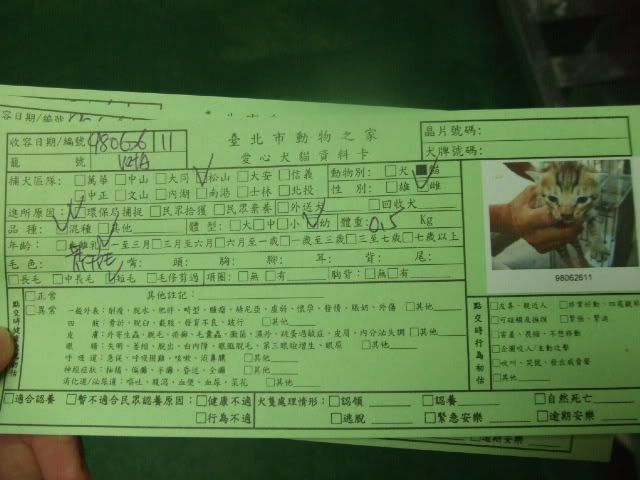 容日期/編號
收容日期/編號 980626 11
臺北市動物之家
晶片號碼:
籠 號
愛心犬貓資料卡
犬牌號碼:
捕犬區隊: □萬華 □中山 □大同 □松山 □大安 □信義 動物別: □犬 ■貓
□中正 □文山 □內湖 □南港 □士林 □北投 性 別: □雄 □雌
進所原因: □環保局捕捉 □民眾拾獲 □民眾棄養 □外送犬 □回收犬
品 種: □混種 □其他 體 型: □大 □中 □小 □幼 體重: 0.5 Kg
年齡: □離乳 □一至三月 □三月至六月 □六月至一歲 □一歲至三歲 □三至七歲 □七歲以上
毛 色: 嘴: 頭: 胸: 腳: 耳: 背: 尾:
□長毛 □中長毛 □短毛 □毛修剪過 項圈: □無 □有 胸背: □無 □有
98062611
點交時健康
□正常 其他註記:
□異常 一般外表: 削瘦、脫水、肥胖、畸型、腫瘤、赫尼亞、虛弱、懷孕、發情、脹奶、外傷 □其他
四 肢: 骨折、脫臼、截肢、發育不良、跛行 □其他
皮 膚: 外寄生蟲、脫毛、疥癬、毛囊蟲、黴菌、濕疹、跳蚤過敏症、皮屑、內分泌失調 □其他
眼 睛: 失明、萎縮、脫出、白內障、眼瞼脫毛、第三眼瞼增生、眼屎 □其他
呼 吸 道: 急促、呼吸困難、咳嗽、流鼻膿 □其他
神經症狀: 抽搐、偏癱、半癱、昏迷、全癱 □其他
消化道/泌尿道: 嘔吐、腹瀉、血便、血尿、菜花 □其他
點交時行為初估
□友善、親近人 □非常好動、四處觀望
□可碰觸及撫摸 □緊張、緊迫
□害羞、畏縮、不想移動
□企圖咬人/主動攻擊
□吹叫、哭號、發出威脅聲
□其他
□適合認養 □暫不適合民眾認養原因: □健康不適 犬隻處理情形: □認領 □認養 □自然死亡
□行為不適 □逃脫 □緊急安樂 □逾期安樂
□逾期安樂